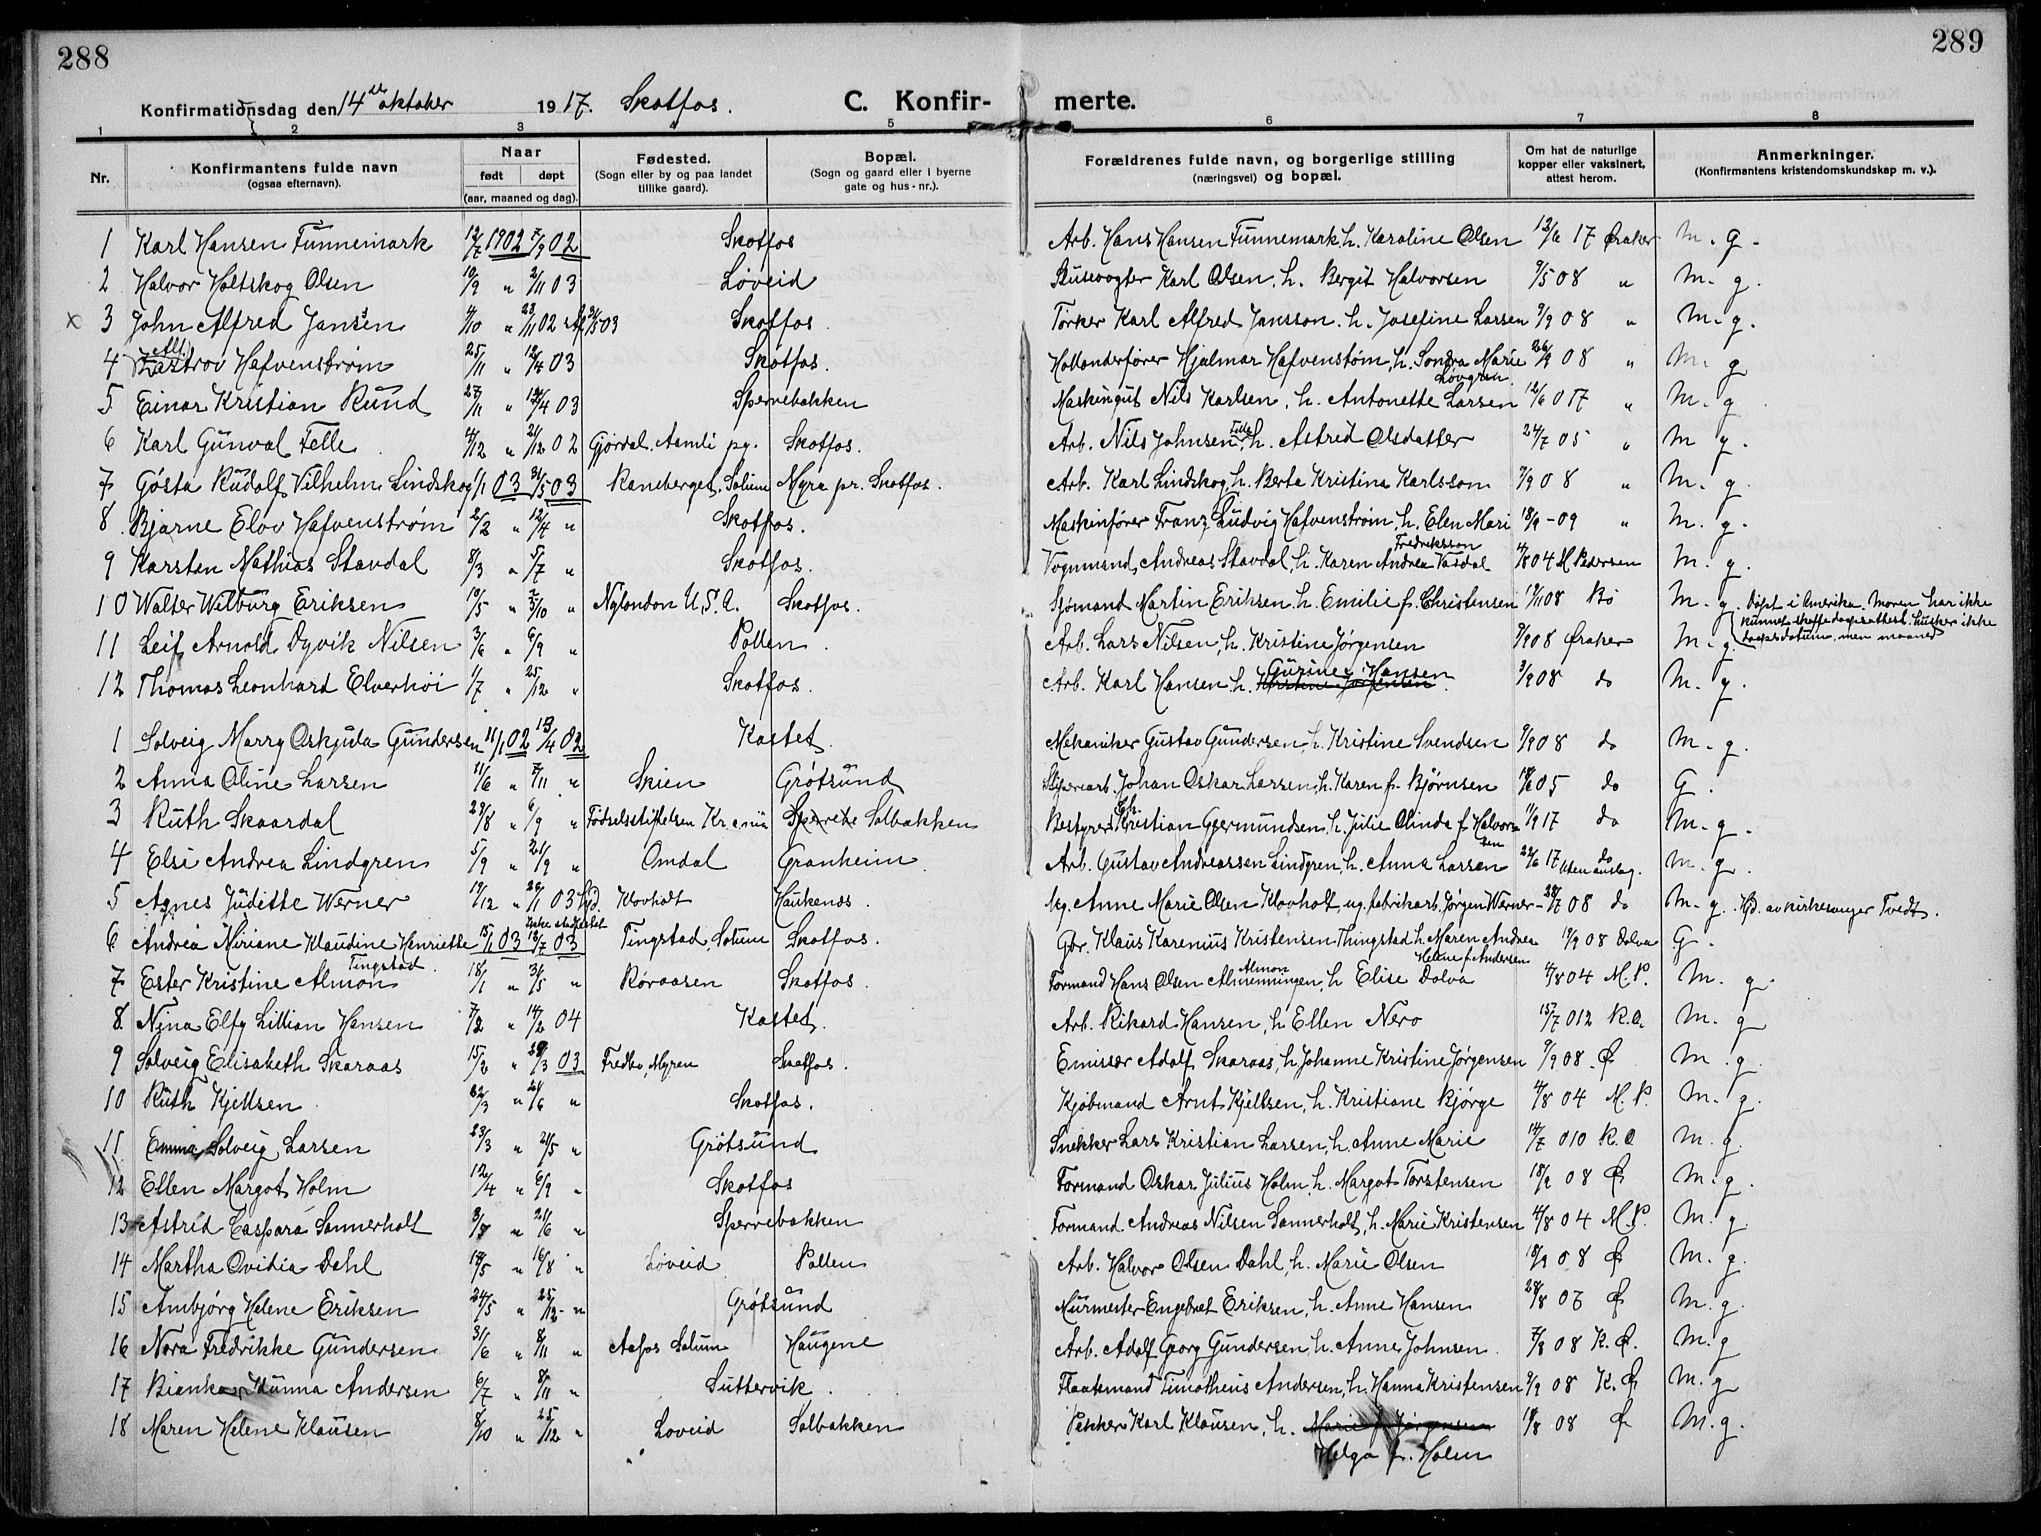 288
289
Konfirmationsdag den 14de oktober 1917. Skotfos. C. Konfir- merte.
1 2 3 4 5 6 7 8
Nr. Konfirmantens fulde navn (ogsaa efternavn). Naar født døpt (aar, maaned og dag). Fødested. (Sogn eller by og paa landet tillike gaard). Bopæl. (Sogn og gaard eller i byerne gate og hus-nr.). Forældrenes fulde navn, og borgerlige stilling (næringsvei) og bopæl. Om hat de naturlige kopper eller vaksinert, attest herom. Anmerkninger. (Konfirmantens kristendomskundskap m. v.).
1 Karl Hansen Tunnemark 12/7 1902 7/9 02 Skotfos Arb. Hans Hansen Tunnemark, h. Karoline Olsen 12/6 17 Øraker M. g.
2 Halvor Holtskog Olsen 10/9 " 2/11 03 Løveid Busevogter Karl Olsen, h. Bergit Halvorsen 9/5 08 " M. g.
x 3 John Alfred Jansen 4/10 " 23/11 02 31/5 03 Skotfos. Tørker Karl Alfred Jansson, h. Josefine Larsen 9/9 08 " M. g.
4 Hafvenstrøm 25/11 " 12/4 03 Skotfos. Hollænderfører Hjalmar Hafvenstøm, h. Sondra Marie Løvgren 26/9 08 " M. g
5 Einar Kristian Rund 27/11 " 12/4 03 Sperrebakken Maskingut Nils Karlsen, h. Antonette Larsen 12/6 017 " M. g
6 Karl Gunval Felle 4/12 " 21/12 02 Gjørdal, Aamli pg. Skotfos. Arb. Nils Johnsen Felle, h. Astrid Olsdatter 24/7 05 " M g.
7 Gøsta Rudolf Vilhelm Lindskog 1/1 03 31/5 03 Raneberget, Solum Myra pr. Skotfos. Arb. Karl Lindskog, h. Berta Kristina Karlsson 9/9 08 " M. g.
8 Bjarne Elov Hafvenstrøm 2/2 " 12/4 " Skotfos. Maskinfører Franz Ludvig Hafvenstrøm, h. Elen Mari Fredriksson 18/9 - 09 " M. g.
9 Karsten Mathias Stavdal 8/3 " 5/7 " Skotfos. Vognmand Andreas Stavdal, h. Karen Andrea Vasdal 4/8 04 M Pedersen M. g.
10 Walter Wilburg Eriksen 10/5 " 2/10 " Nylondon U.S.A. Skotfos. Sjømand Martin Eriksen h. Emilie f. Christensen 19/11 08 Bø M. g. Døpt i Amerika. Moren har ikke kunnet skaffe daapsattest. Husker ikke daapsdatum, men maaned
11 Leif Arnold Dyvik Nilsen 3/6 " 6/9 " Pollen. Arb. Lars Nilsen, h. Kristine Jørgensen 9/9 08 Øraker M. g.
12 Thomas Leonhard Elverhøi 1/7 " 25/12 " Skotfos. Arb. Karl Hansen, h. Kristine Jørgensen Gurine Hansen. 3/9 08 do M. g.
1 Solveig Marry Oskjula Gundersen 11/1 02 13/4 02 Kastet. Mekaniker Gustav Gundersen, h. Kristine Svendsen 9/9 08 do M. g.
2 Anna Oline Larsen 11/6 " 7/11 " Skien Grøtsund Johan Oskar Larsen, h. Karen f. Bjørnsen 05 do G.
3 Ruth Skaardal 29/8 " 6/9 " Fødselsstiftelsen Kr.ania Sperreb Solbakken Bestyrer Kristian Gjermundsen, h. Julie Olinda f. Halvorsen 11/9 17 do M. g.
4 Elsi Andrea Lindgren 5/9 " 21/9 " Omdal Granheim Arb. Gustav Andreassen Lindgren, h. Anna Larsen 22/6 17 do Uten anslag. M. g.
5 Agnes Juditte Werner 19/12 " 29/1 03 Klovholt Haukenes. Ug. Anne Marie Olsen Klovholt, ug. fabrikarb. Jørgen Werner - 28/7 08 do M. g. av kirkesanger Tvedt.
6 Andrea Miriane Klaudine Henriette Tingstad. 15/1 03 12/7 03 Ikke stadfestet Tingstad, Solum Skotfos. Gbr. Klaus Karenius Kristensen Thingstad h. Maren Andrea Helene f. Andersen 19/9 08 Dolva G.
7 Ester Kristine Almon 18/1 " 31/5 " Røraasen Skotfos. Formand Hans Olsen Almenningen Almon, h Elise Dolva 4/8 04 M. P. M. g.
8. Nina Elfy Lillian Hansen 7/2 " 14/2 04 Kastet. Arb. Rikard Hansen, h Ellen Nero 15/7 012 K.O. M. g
9 Solveig Elisabeth Skaraas 15/2 " 29/3 03 Fredbo, Myren Skotfos. Emissær Adolf Skaraas, h Johanne Kristine Jørgensen 9/9 08. Ø M. g.
10 Ruth Kjellsen 22/3 " 21/6 " Skotfos. Kjøbmand Arnt Kjellsen, h. Kristiane Bjørge 4/8 04 M. P. M. g.
11 Emma Solveig Larsen 23/3 " 21/5 " Grøtsund Snekker Lars Kristian Larsen, h. Anne Marie 14/7 010 K. O M. g.
12 Ellen Margot Holm 12/4 " 6/9 " Skotfos Formand Oskar Julius Holm, h. Margot Torstensen 18/9 08 Ø M. g.
13 Astrid Caspara Sannerholt 3/5 " 21/6 " Sperrebakken Formand. Andreas Nilsen Sannerholt, h. Marie Kristensen 4/8 04 M. P. M. g.
14 Martha Ovidia Dahl 14/5 " 16/8 " Løveid Pollen Arb. Halvor Olsen Dahl, h. Marie Olsen 18/9 08 Ø M. g.
15 Ambjørg Helene Eriksen 24/5 " 25/12 " Grøtsund Murmester Engebret Eriksen, h. Anne Hansen 28/8 07 Ø M. g.
16 Nora Fredrikke Gundersen 31/6 " 8/11 " Aafos Solum Haugene Arb. Adolf Georg Gundersen, h. Anne Johnsen 7/8 08 K. Ø. M. g
17 Bienka Hanna Andersen 6/7 " 8/11 " Suttervik. Flaatemand Timotheus Andersen, h. Hanna Kristensen 9/9 08 K. Ø M. g
18 Maren Helene Klausen 8/10 " 25/12 " Løveid Solbakken Pekker Karl Klausen, h. Marie f. Jørgensen Helga f. Holm 18/8 08 Ø M. g.